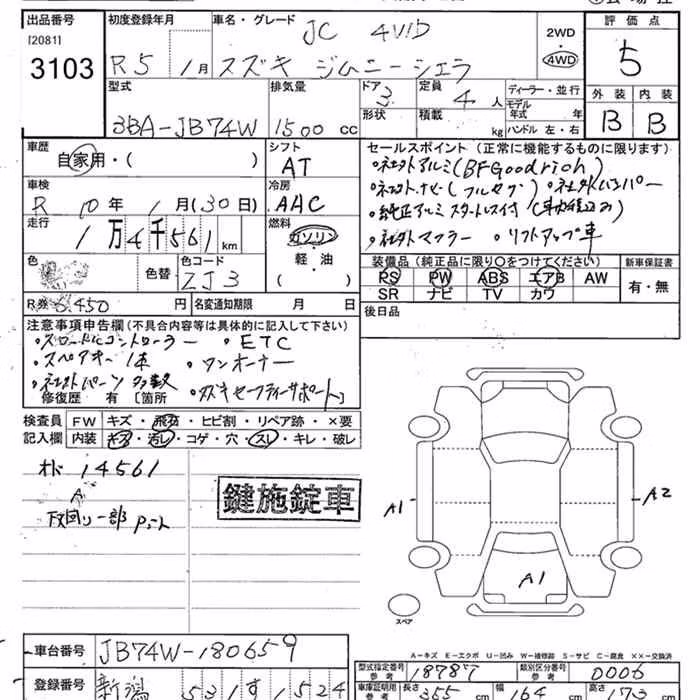 出品番号 初度登録年月 車名・グレード 評価点
[2081] JC 4WD 2WD
3103 R5 1月 スズキ ジムニーシエラ 4WD 5
型式 排気量 ドア 3 定員 4人 ディーラー・並行 外装 内装
モデル年式 年
3BA-JB74W 1500 cc 形状 積載 kg ハンドル 左・右 B B
車歴 シフト セールスポイント (正常に機能するものに限ります)
自家用・( ) AT ・社外アルミ(BFGoodrich)
車検 冷房 ・社外ナビ(フルセグ) ・社外バンパー
R 10年 1月(30日) AAC ・純正アルミスタートレス付
走行 燃料
1万4千561km ガソリン ・社外マフラー ・リフトアップ車
軽・油
色 色替 色コード ( ) 装備品(純正品に限り○をつけてください) 新車保証書
ZJ3 PS PW ABS エアB AW 有・無
SR ナビ TV カワ
R券 6,450円 名変通知期限 月 日 後日品
注意事項申告欄(不具合内容等は具体的に記入して下さい)
・スロットルコントローラー ・ETC
・スペアキー1本 ・ワンオーナー
・社外パーツ多数
修復歴 有 [箇所 ・スズキセーフティーサポート]
検査員 FW キズ・飛石・ヒビ割・リペア跡・×要
記入欄 内装 キズ・汚レ・コゲ・穴・スレ・キレ・破レ
オド 14561
鍵施錠車
A
下回り一部 Pコート
A1
A2
A1
スペア
A-キズ E-エクボ U-凹み W-補修跡 S-サビ C-腐食 ××-交換済
車台番号 JB74W-180659
型式指定番号 参考 18787 類別区分番号 参考 0006
登録番号 新潟 531 す 1524
車庫証明用 参考 長さ 355 cm 幅 164 cm 高さ 173 cm